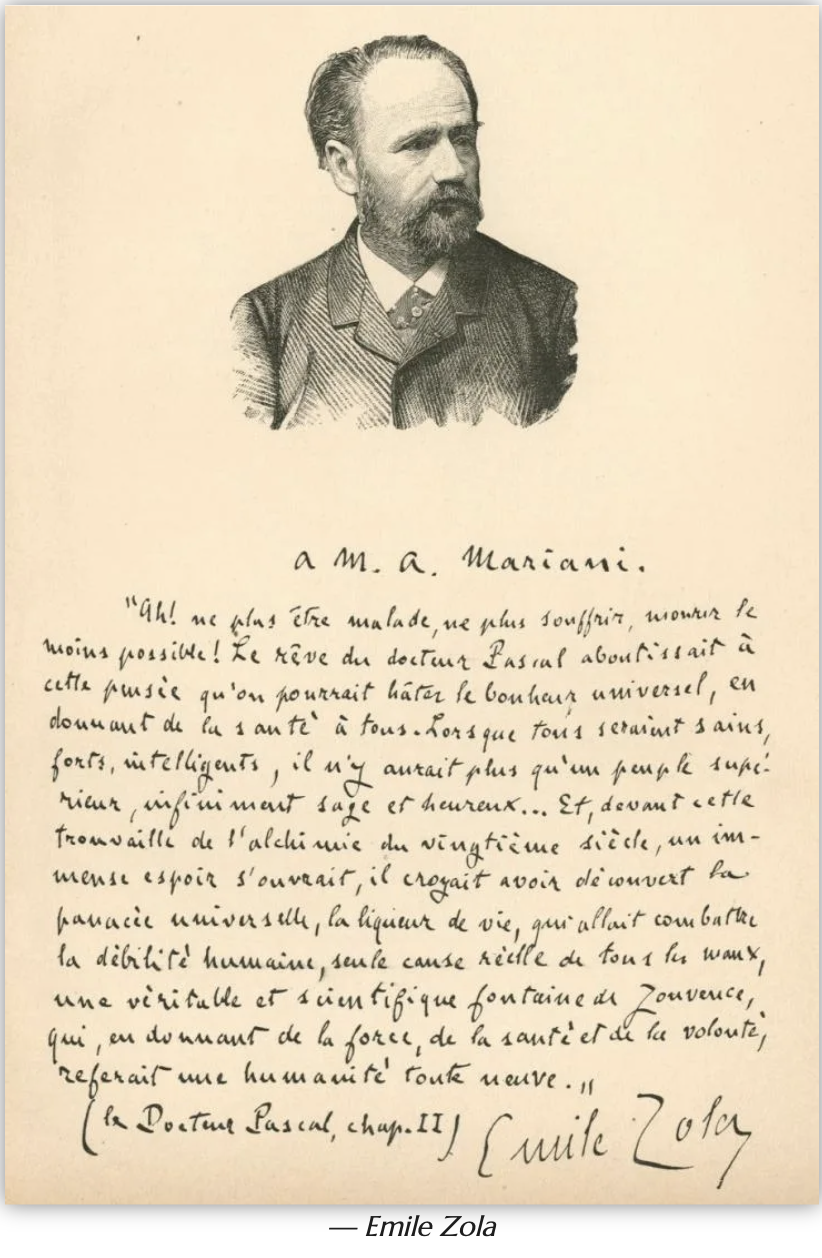 a M. A. Mariani.
"Ah! ne plus être malade, ne plus souffrir, mourir le
moins possible! Le rêve du docteur Pascal aboutissait à
cette pensée qu'on pourrait hâter le bonheur universel, en
donnant de la santé à tous. Lorsque tous seraient sains,
forts, intelligents, il n'y aurait plus qu'un peuple supé-
rieur, infiniment sage et heureux... Et, devant cette
trouvaille de l'alchimie du vingtième siècle, un im-
mense espoir s'ouvrait, il croyait avoir découvert la
panacée universelle, la liqueur de vie, qui allait combattre
la débilité humaine, seule cause réelle de tous les maux,
une véritable et scientifique fontaine de Jouvence,
qui, en donnant de la force, de la santé et de la volonté,
referait une humanité toute neuve."
(le Docteur Pascal, chap. II) Emile Zola
— Emile Zola